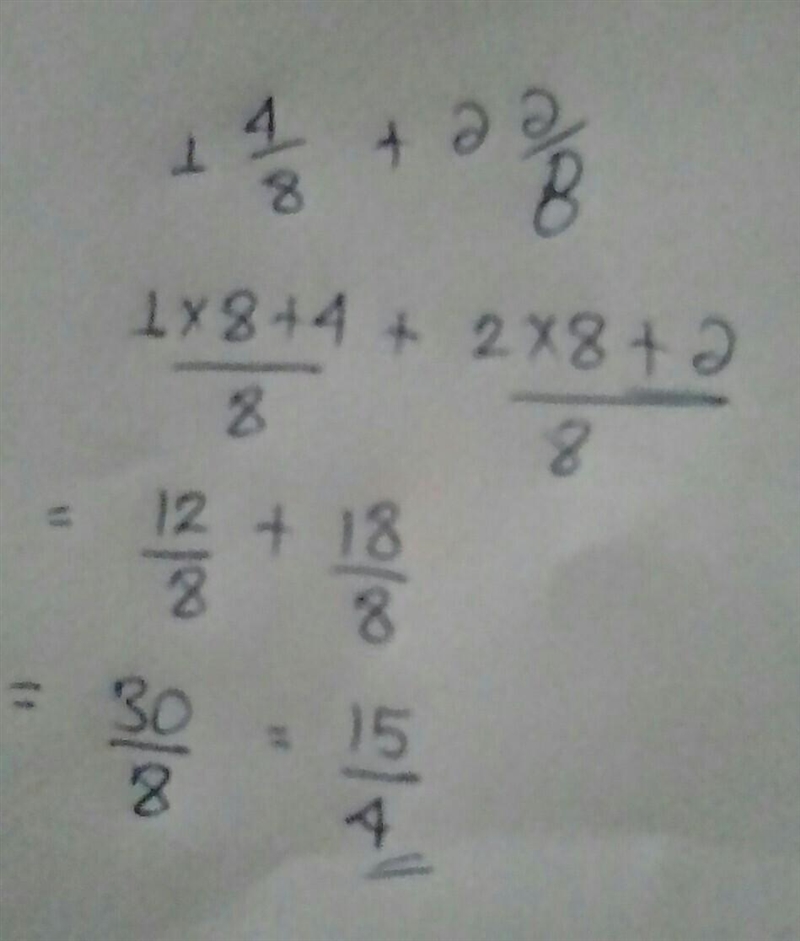 1 4/8 + 2 2/8
1×8+4/8 + 2×8+2/8
= 12/8 + 18/8
= 30/8 = 15/4